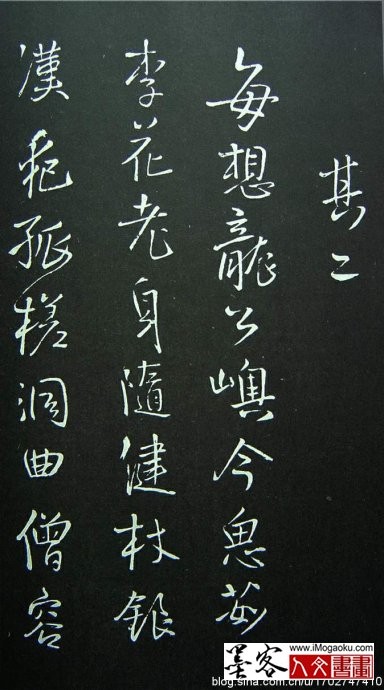 其二
每想龍公嶼今
李花老身隨健杖銀
漢孤槎洞曲僧容
墨客 人文書畫
www.iMogaoku.com
blog.sina.com.cn/u/1702747410